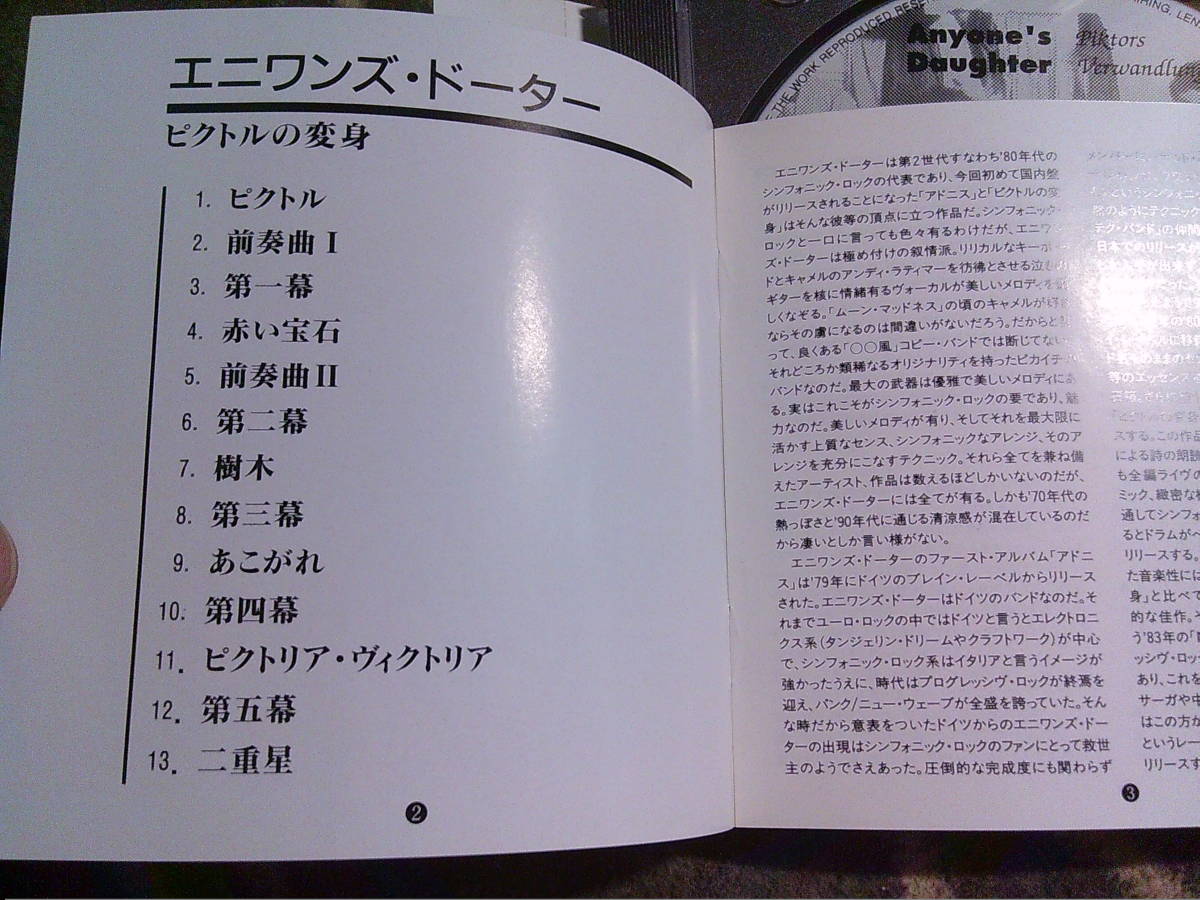 エニワンズ・ドーター
ピクトルの変身
1. ピクトル
2. 前奏曲I
3. 第一幕
4. 赤い宝石
5. 前奏曲II
6. 第二幕
7. 樹木
8. 第三幕
9. あこがれ
10. 第四幕
11. ピクトリア・ヴィクトリア
12. 第五幕
13. 二重星
2
THE WORK REPRODUCED RESE
HING, LEN
Anyone's
Daughter
Piktors
Verwandlun
エニワンズ・ドーターは第2世代すなわち'80年代の
シンフォニック・ロックの代表であり、今回初めて国内盤
がリリースされることになった「アドニス」と「ピクトルの変
身」はそんな彼等の頂点に立つ作品だ。シンフォニック・
ロックと一口に言っても色々有るわけだが、エニワン
ズ・ドーターは極め付けの叙情派。リリカルなキーボー
ドとキャメルのアンディ・ラティマーを彷彿とさせる泣きの
ギターを核に情緒有るヴォーカルが美しいメロディを
しくなぞる。「ムーン・マッドネス」の頃のキャメルが
ならその虜になるのは間違いがないだろう。だからと
って、良くある「〇〇風」コピー・バンドでは断じてない
それどころか類稀なるオリジナリティを持ったピカイチ
バンドなのだ。最大の武器は優雅で美しいメロディにあ
る。実はこれこそがシンフォニック・ロックの要であり、魅
力なのだ。美しいメロディが有り、そしてそれを最大限に
活かす上質なセンス、シンフォニックなアレンジ、そのア
レンジを充分にこなすテクニック。それら全てを兼ね備
えたアーティスト、作品は数えるほどしかいないのだが、
エニワンズ・ドーターには全てが有る。しかも'70年代の
熱っぽさと'90年代に通じる清涼感が混在しているのだ
から凄いとしか言い様がない。
エニワンズ・ドーターのファースト・アルバム「アドニ
ス」は'79年にドイツのブレイン・レーベルからリリース
された。エニワンズ・ドーターはドイツのバンドなのだ。そ
れまでユーロ・ロックの中ではドイツと言うとエレクトロニ
クス系(タンジェリン・ドリームやクラフトワーク)が中心
で、シンフォニック・ロック系はイタリアと言うイメージが
強かったうえに、時代はプログレッシヴ・ロックが終焉を
迎え、パンク/ニュー・ウェーブが全盛を誇っていた。そん
な時だから意表をついたドイツからのエニワンズ・ドー
ターの出現はシンフォニック・ロックのファンにとって救世
主のようでさえあった。圧倒的な完成度にも関わらず
というシンフォニ
のようにテクニック
テク・バンド」の仲間
日本でのリリースが
スする。この作品
による詩の朗読
も全編ライヴの
ミック、緻密な
通してシンフォ
るとドラムがへ
リリースする。
た音楽性には
身」と比べて
的な佳作。そ
う'83年の「
ッシヴ・ロッ
あり、これを
サーガや中
はこの方か
というレー
リリースす
3